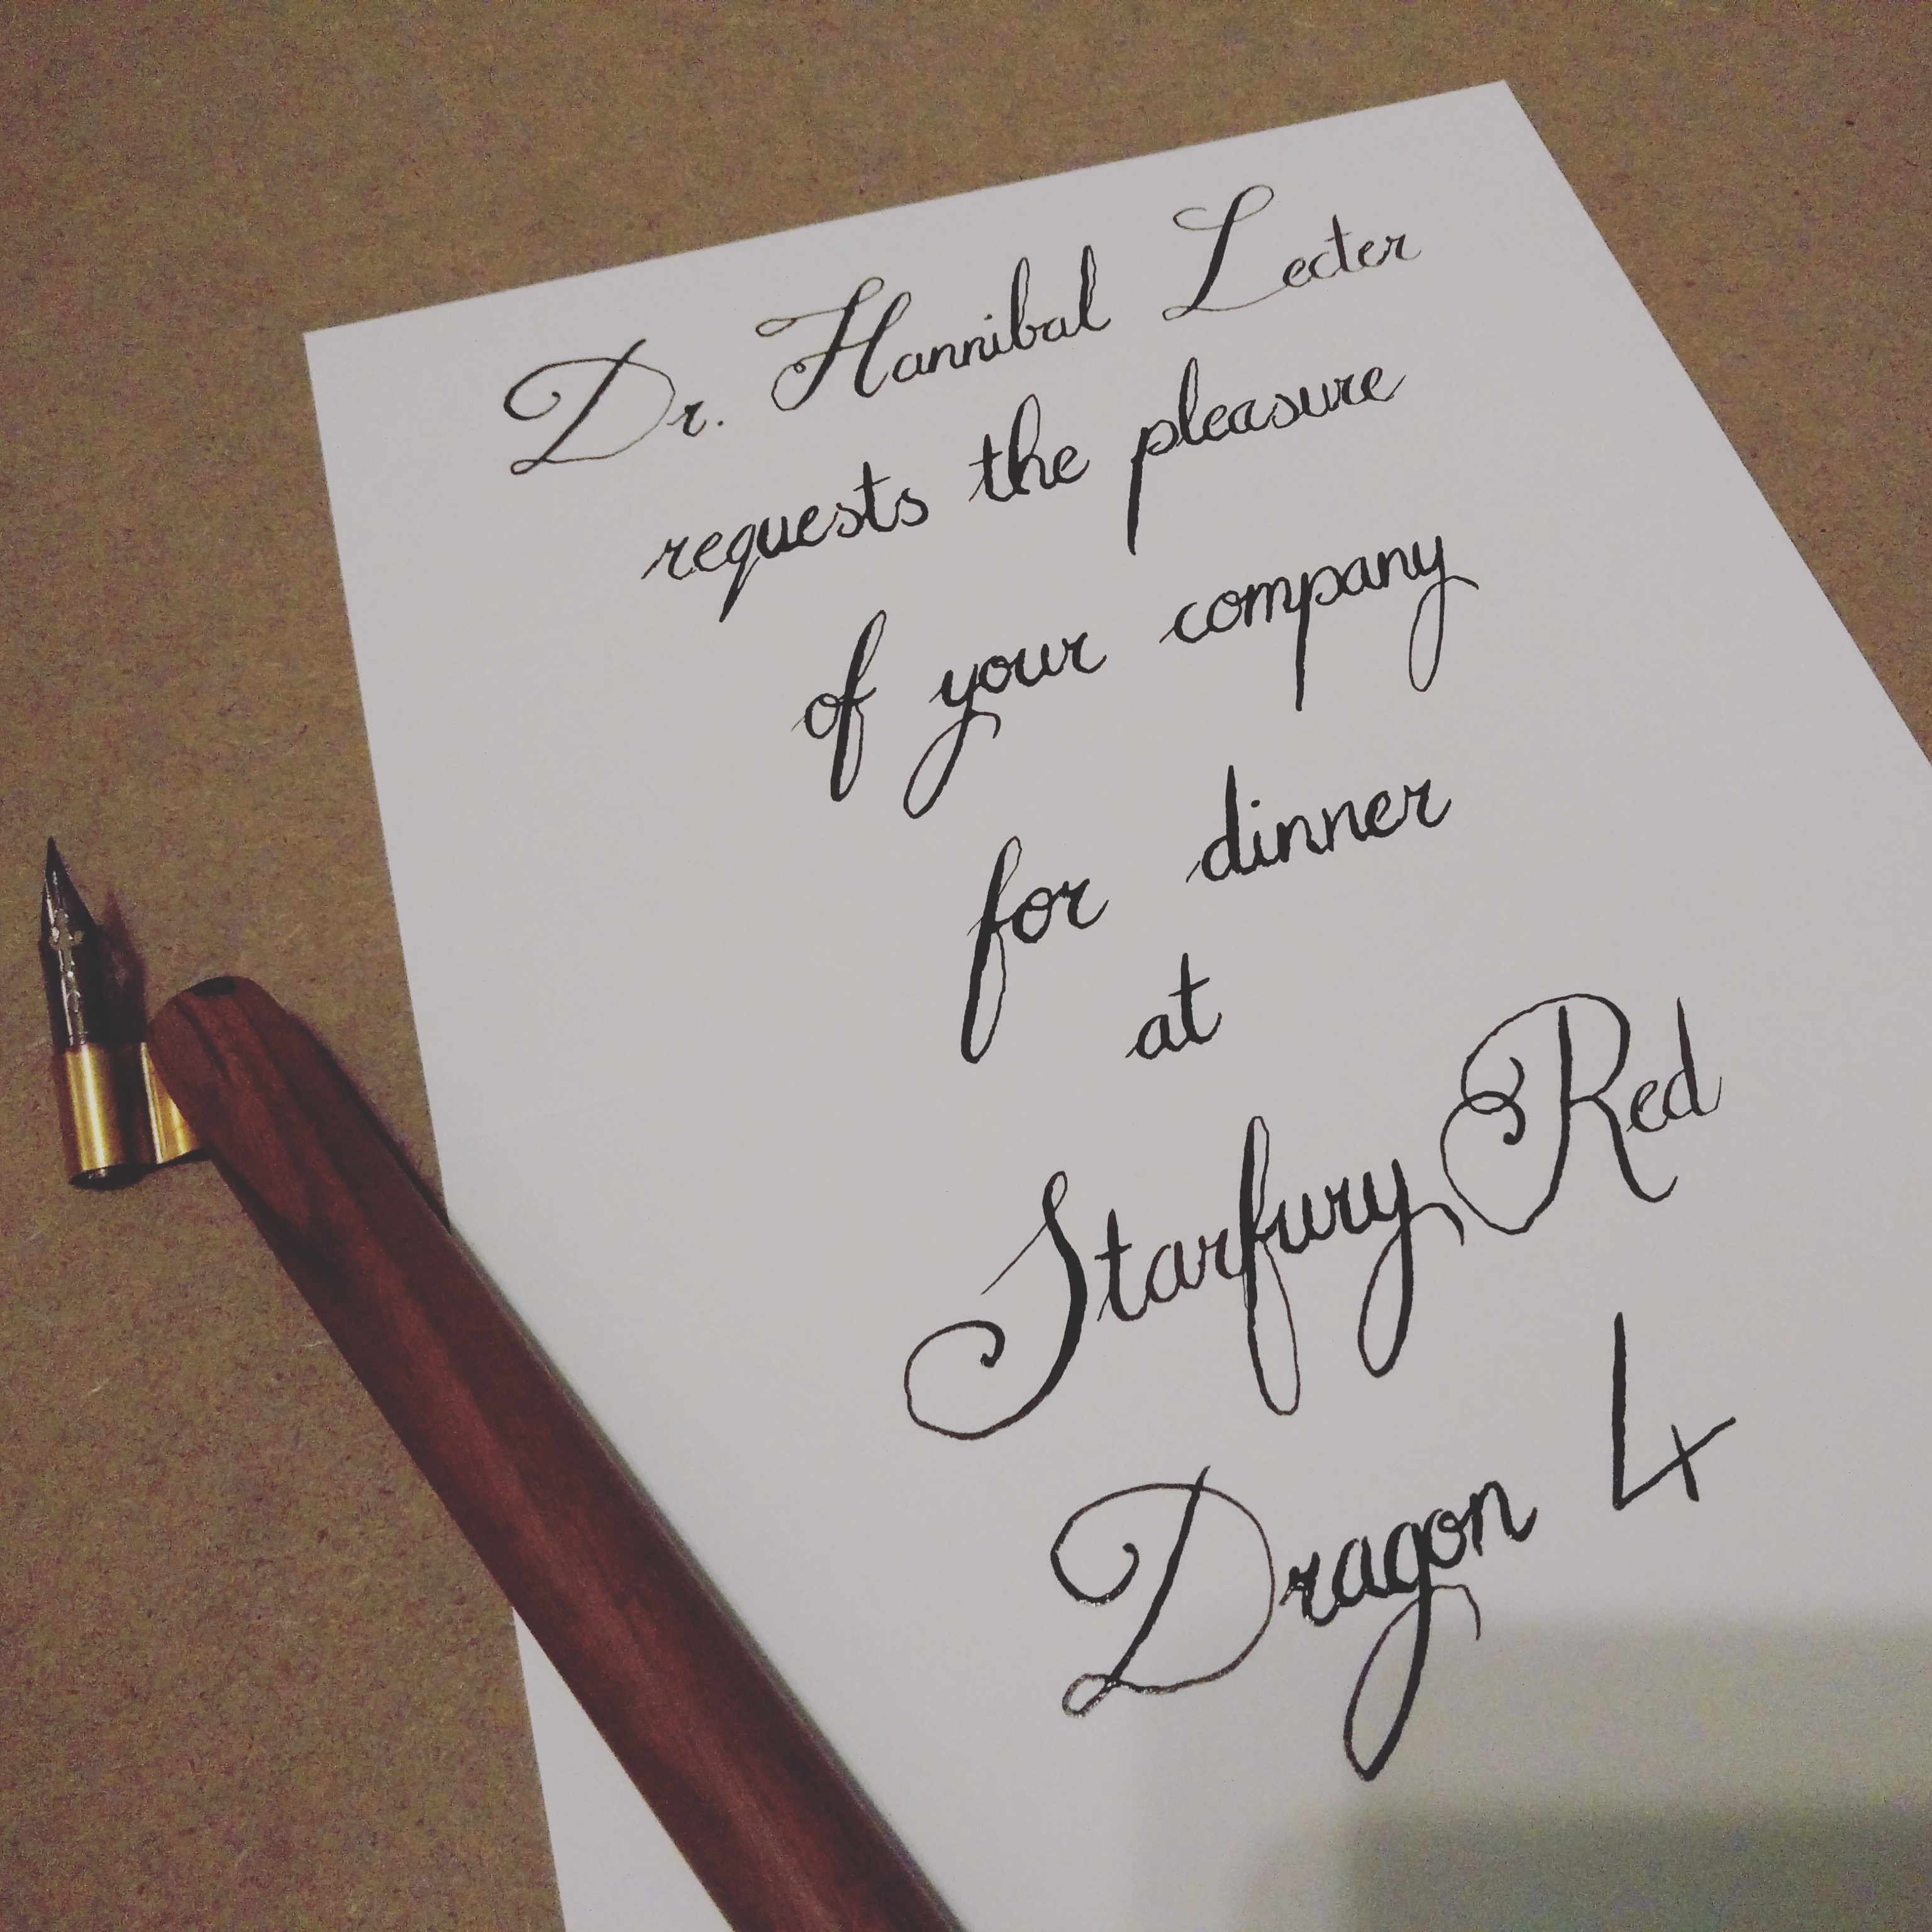 Dr. Hannibal Lecter
requests the pleasure
of your company
for dinner
at
Starfury Red
Dragon 4